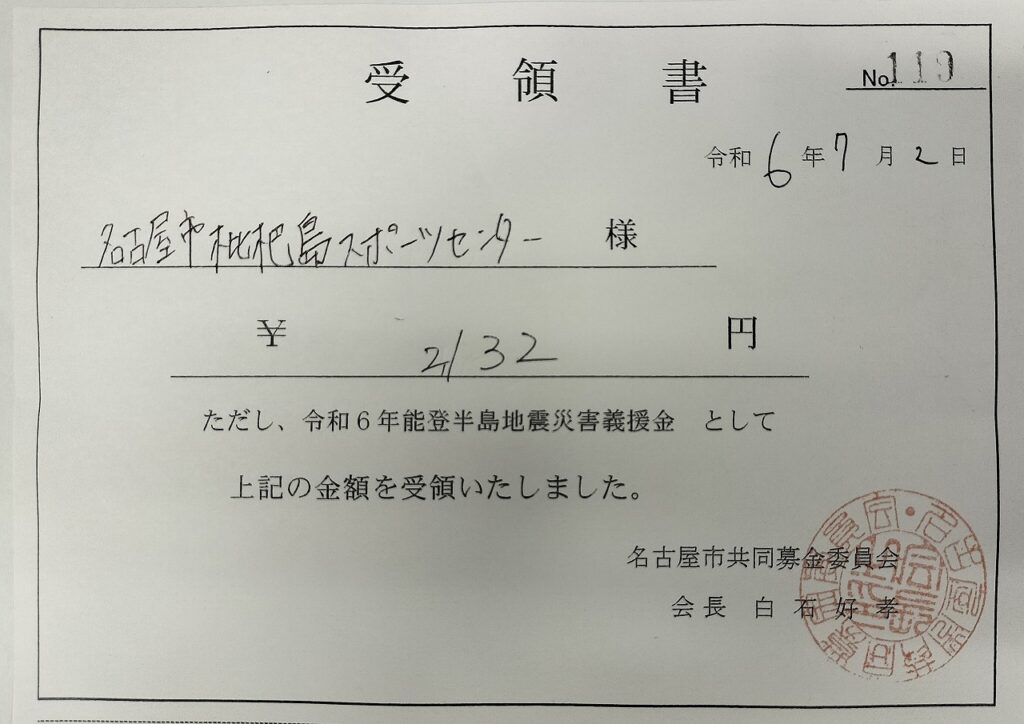 受領書
No.119
令和6年7月2日
名古屋市枇杷島スポーツセンター 様
¥ 2132 円
ただし、令和6年能登半島地震災害義援金 として
上記の金額を受領いたしました。
名古屋市共同募金委員会
会長 白石好孝